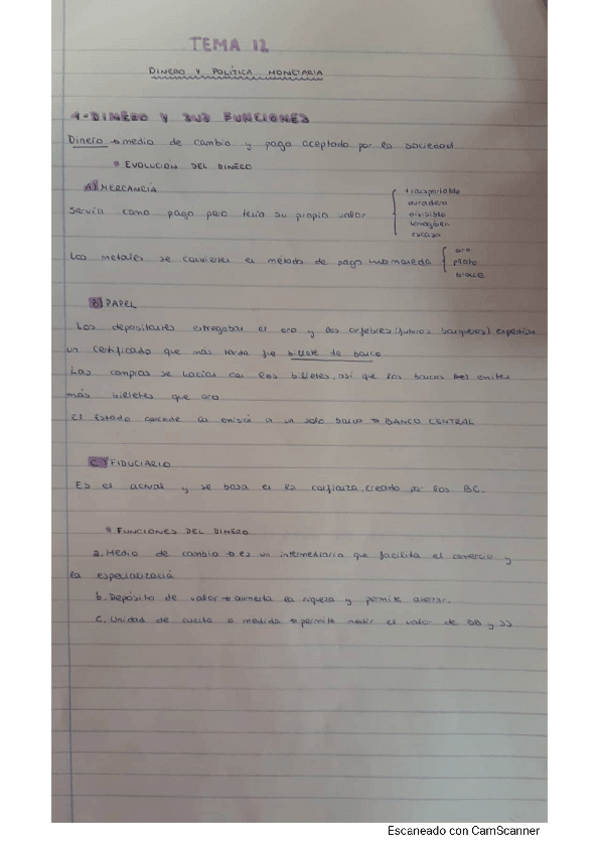 TEMA 12
DINERO Y POLÍTICA MONETARIA
1-DINERO Y SUS FUNCIONES
Dinero → medio de cambio y pago aceptado por la sociedad
• EVOLUCIÓN DEL DINERO
A) MERCANCÍA
transportable
Servía como pago pero tenía su propio valor
duradera
divisible
homogen
escasa
Los metales se convierten el método de pago moneda
oro
plata
bronce
B) PAPEL
Los depositantes entregaban el oro y los orfebres (futuros banqueros) expedían
un certificado que más tarde fue billete de banco
Las compras se hacían con los billetes, así que los bancos emiten
más billetes que oro
El Estado concede la emisió a un solo banco → BANCO CENTRAL
C) FIDUCIARIO
Es el actual y se basa en la confianza, creado por los BC.
• FUNCIONES DEL DINERO
a. Medio de cambio → es un intermediario que facilita el comercio y
la especializació
b. Depósito de valor → aumenta la riqueza y permite ahorrar.
C. Unidad de cuenta o medida → permite medir el valor de BB y SS
Escaneado con CamScanner